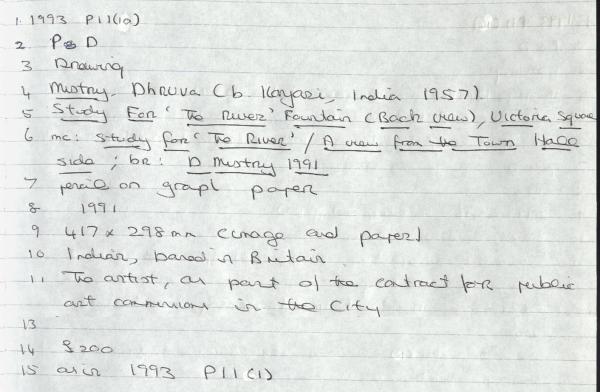 1. 1993 P11(10)
2 P&D
3 Drawing
4 Mistry, Dhruva (b. Kanjari, India 1957)
5 Study For 'The River' Fountain (Back view), Victoria Square
6 mc: Study for 'The River' / A view from the Town Hall
side ; br: D Mistry 1991
7 pencil on graph paper
8 1991
9 417 x 298 mm (image and paper)
10 Indian, based in Britain
11 The artist, as part of the contract for public
art commissions in the City
13
14 £200
15 as in 1993 P11(1)